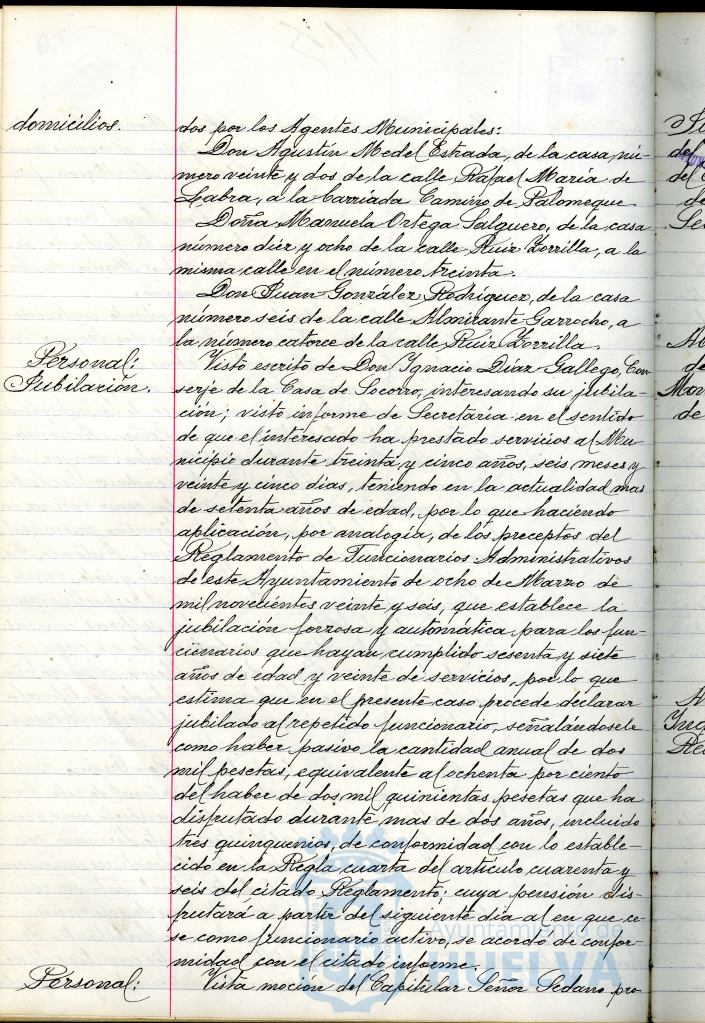 domicilios.
dos por los Agentes Municipales:
Don Agustín Medel Estrada, de la casa nú-
mero veinte y dos de la calle Rafael María de
Labra, a la barriada Camino de Palomeque
Doña Manuela Ortega Salguero, de la casa
número diez y ocho de la calle Ruiz Zorrilla, a la
misma calle en el número treinta.
Don Juan González Rodríguez, de la casa
número seis de la calle Almirante Garrocho, a
la número catorce de la calle Ruiz Zorrilla.
Personal:
Jubilación.
Visto escrito de Don Ignacio Díaz Gallego, Con-
serje de la Casa de Socorro, interesando su jubila-
ción; visto informe de Secretaría en el sentido
de que el interesado ha prestado servicios al Mu-
nicipio durante treinta y cinco años, seis meses y
veinte y cinco días, teniendo en la actualidad mas
de setenta años de edad, por lo que haciendo
aplicación, por analogía, de los preceptos del
Reglamento de Funcionarios Administrativos
de este Ayuntamiento de ocho de Marzo de
mil novecientos veinte y seis, que establece la
jubilación forzosa y automática para los fun-
cionarios que hayan cumplido sesenta y siete
años de edad y veinte de servicios, por lo que
estima que en el presente caso procede declarar
jubilado al repetido funcionario, señalándosele
como haber pasivo la cantidad anual de dos
mil pesetas, equivalente al ochenta por ciento
del haber de dos mil quinientas pesetas que ha
disfrutado durante mas de dos años, incluido
tres quinquenios, de conformidad con lo estable-
cido en la Regla cuarta del artículo cuarenta y
seis del citado Reglamento; cuya pensión dis-
frutará a partir del siguiente día al en que ce-
se como funcionario activo, se acordó de confor-
midad con el citado informe.
Personal:
Vista moción del Capitular Señor Sedano pro-
Ayuntamiento de
HUELVA